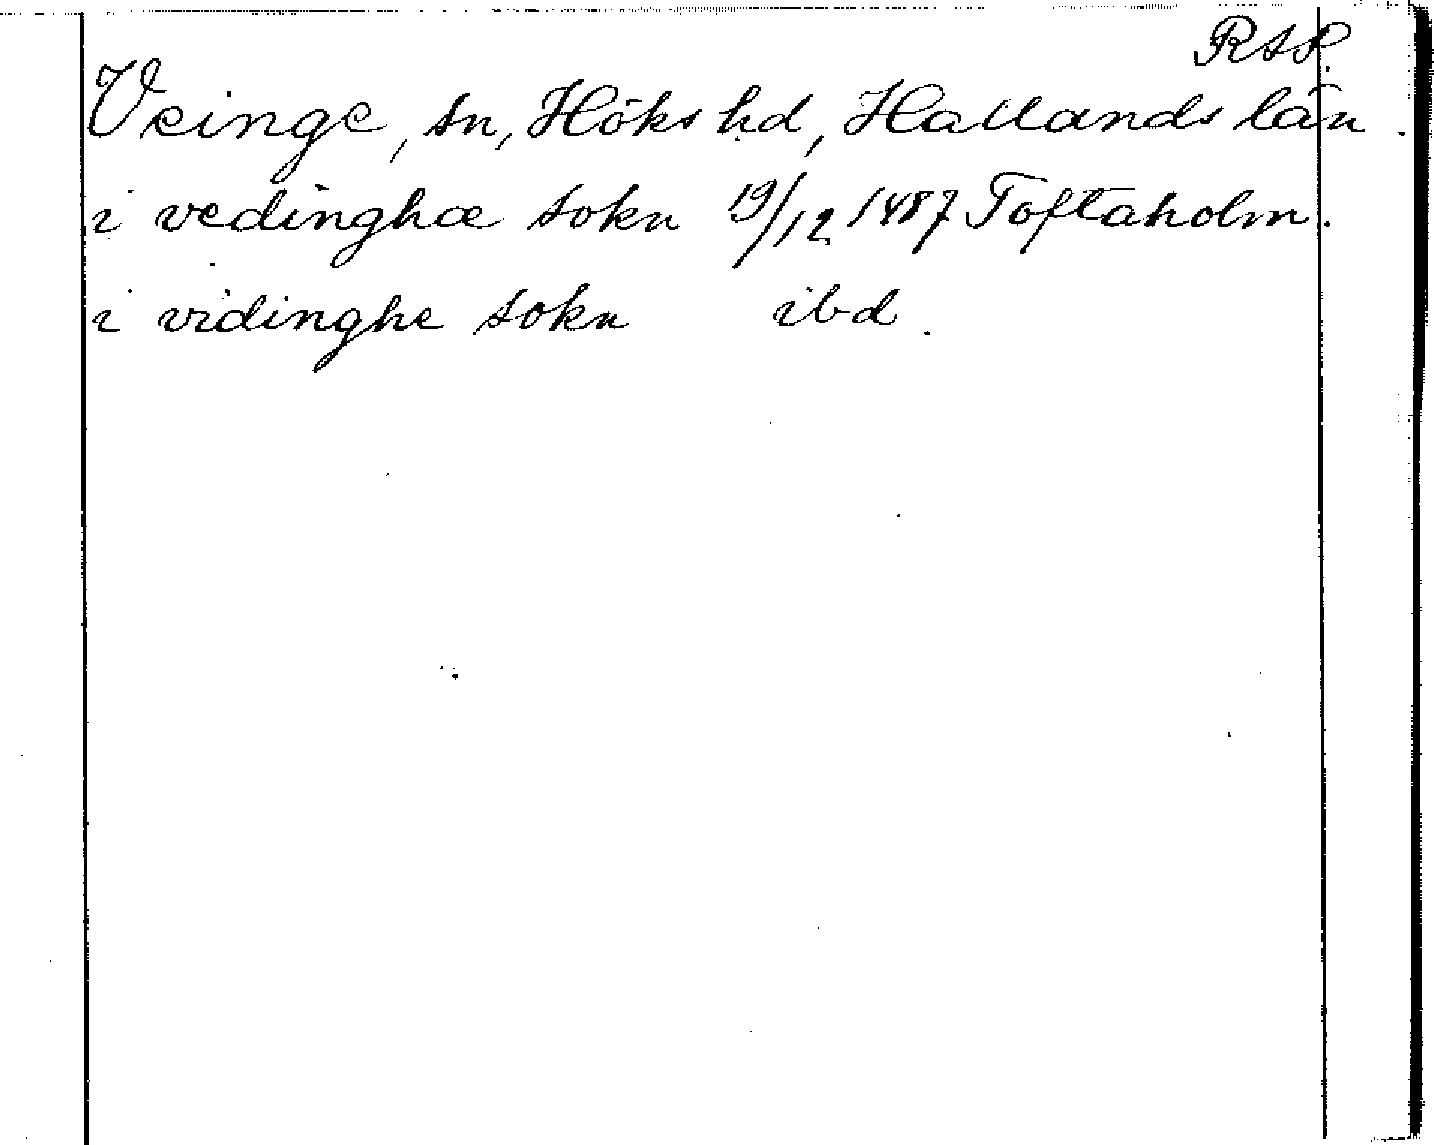 RAP.
Veinge, sn, Höks hd, Hallands län.
i vedinghæ sokn 19/12 1487 Toftaholm.
i vidinghe sokn ibd.